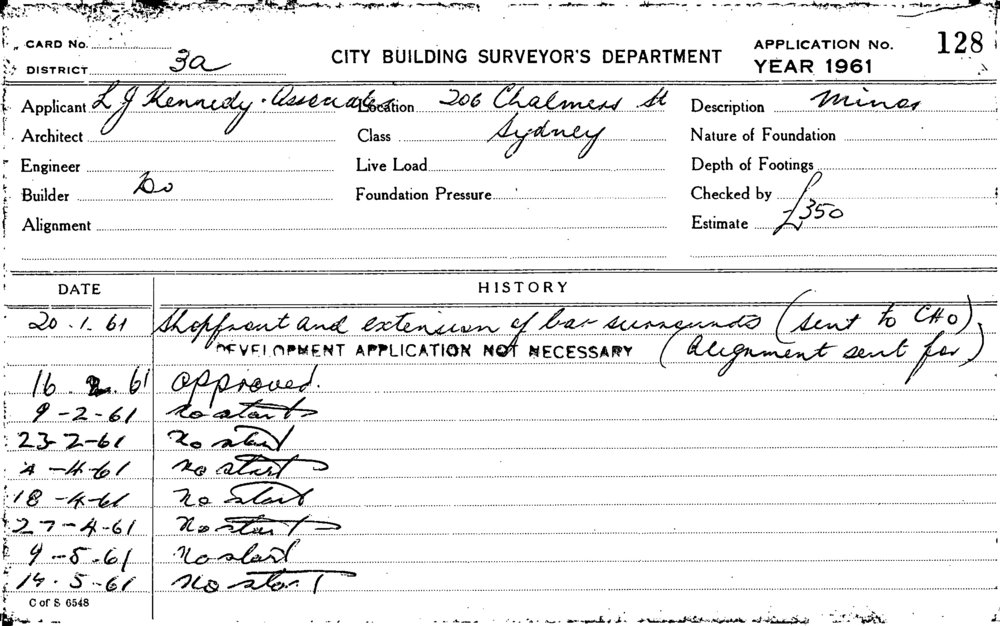 CARD No.
DISTRICT 3a
CITY BUILDING SURVEYOR'S DEPARTMENT
APPLICATION No. 128
YEAR 1961
Applicant L J Kennedy. Associates Location 206 Chalmers St Description Minor
Architect Class Sydney Nature of Foundation
Engineer Live Load Depth of Footings
Builder Do Foundation Pressure Checked by
Alignment Estimate £350
DATE HISTORY
20.1.61 Shopfront and extension of bar surrounds (sent to CHO)
DEVELOPMENT APPLICATION NOT NECESSARY (Alignment sent for)
16.2.61 approved.
9-2-61 no start
23-2-61 No start
4-4-61 no start
18-4-61 No start
27-4-61 No start
9-5-61 No start
19.5-61 No start
C of S 6548